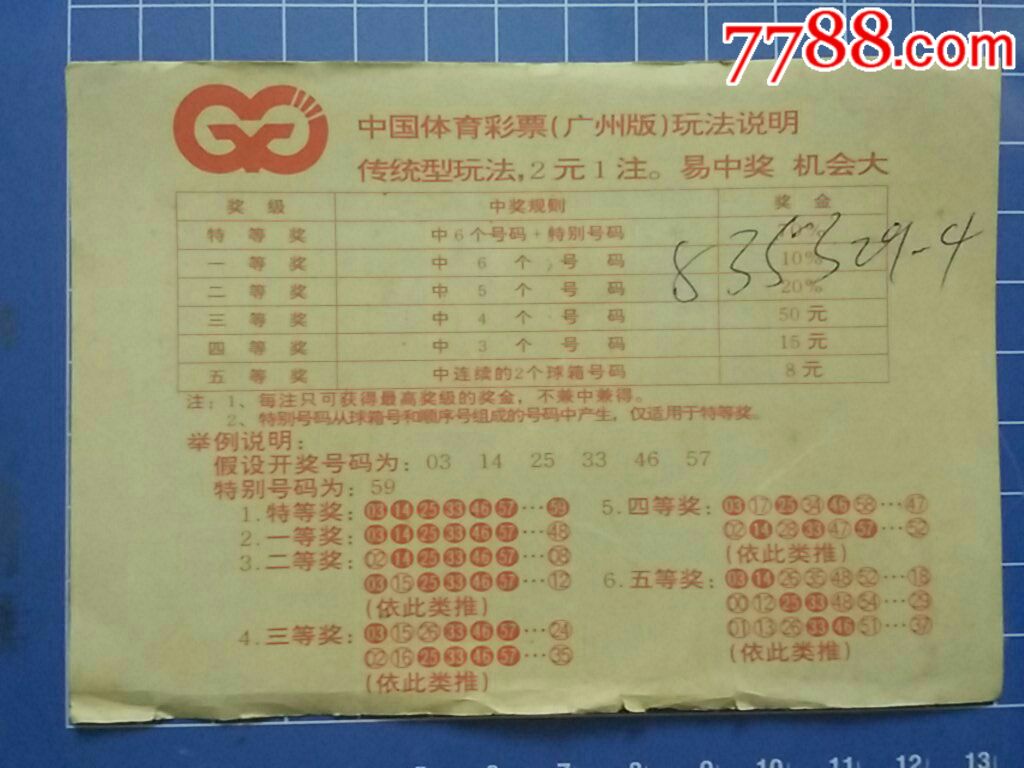 7788.com
中国体育彩票(广州版)玩法说明
传统型玩法,2元1注。易中奖 机会大
奖级 中奖规则 奖金
特等奖 中6个号码+特别号码
一等奖 中6个号码 10%
二等奖 中5个号码 20%
三等奖 中4个号码 50元
四等奖 中3个号码 15元
五等奖 中连续的2个球箱号码 8元
835329-4
注:1、每注只可获得最高奖级的奖金,不兼中兼得。
2、特别号码从球箱号和顺序号组成的号码中产生,仅适用于特等奖。
举例说明:
假设开奖号码为:03 14 25 33 46 57
特别号码为:59
1.特等奖:03 14 25 33 46 57…59
2.一等奖:03 14 25 33 46 57…48
3.二等奖:02 14 25 33 46 57…08
03 15 25 33 46 57…12
(依此类推)
4.三等奖:03 15 26 33 46 57…24
02 16 25 33 46 57…35
(依此类推)
5.四等奖:03 17 25 34 46 58…47
02 14 28 33 47 57…52
(依此类推)
6.五等奖:03 14 26 35 48 52…18
00 12 25 33 48 54…29
01 13 26 33 46 51…37
(依此类推)
7 8 9 10 11 12 13